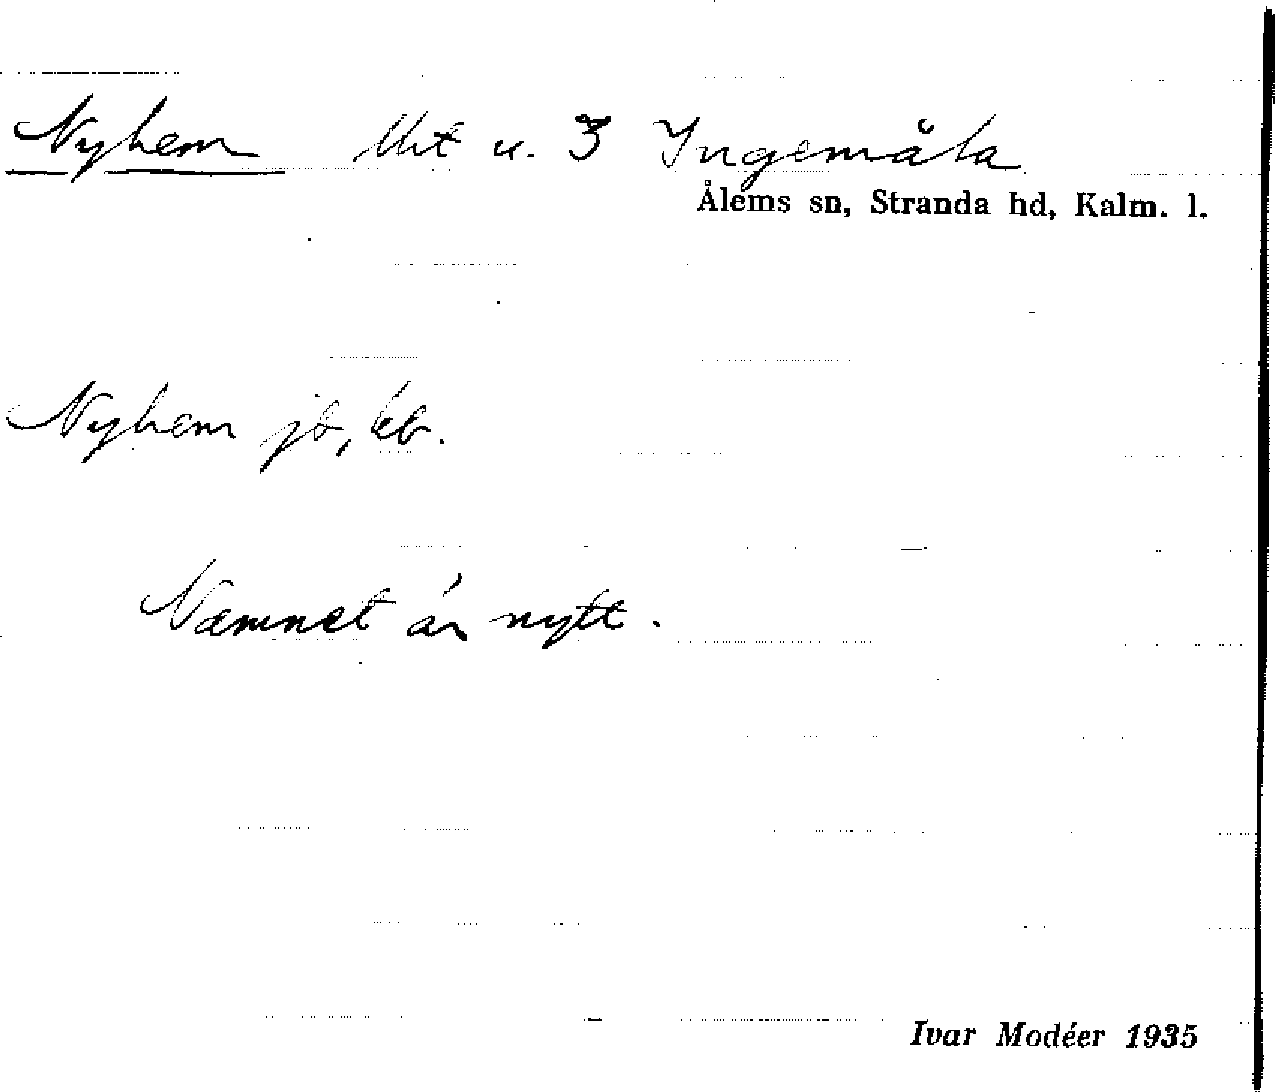 Nyhem Utt u. 3 Ingemåla
Ålems sn, Stranda hd, Kalm. l.
Nyhem jb, kb.
Namnet är nytt.
Ivar Modéer 1935